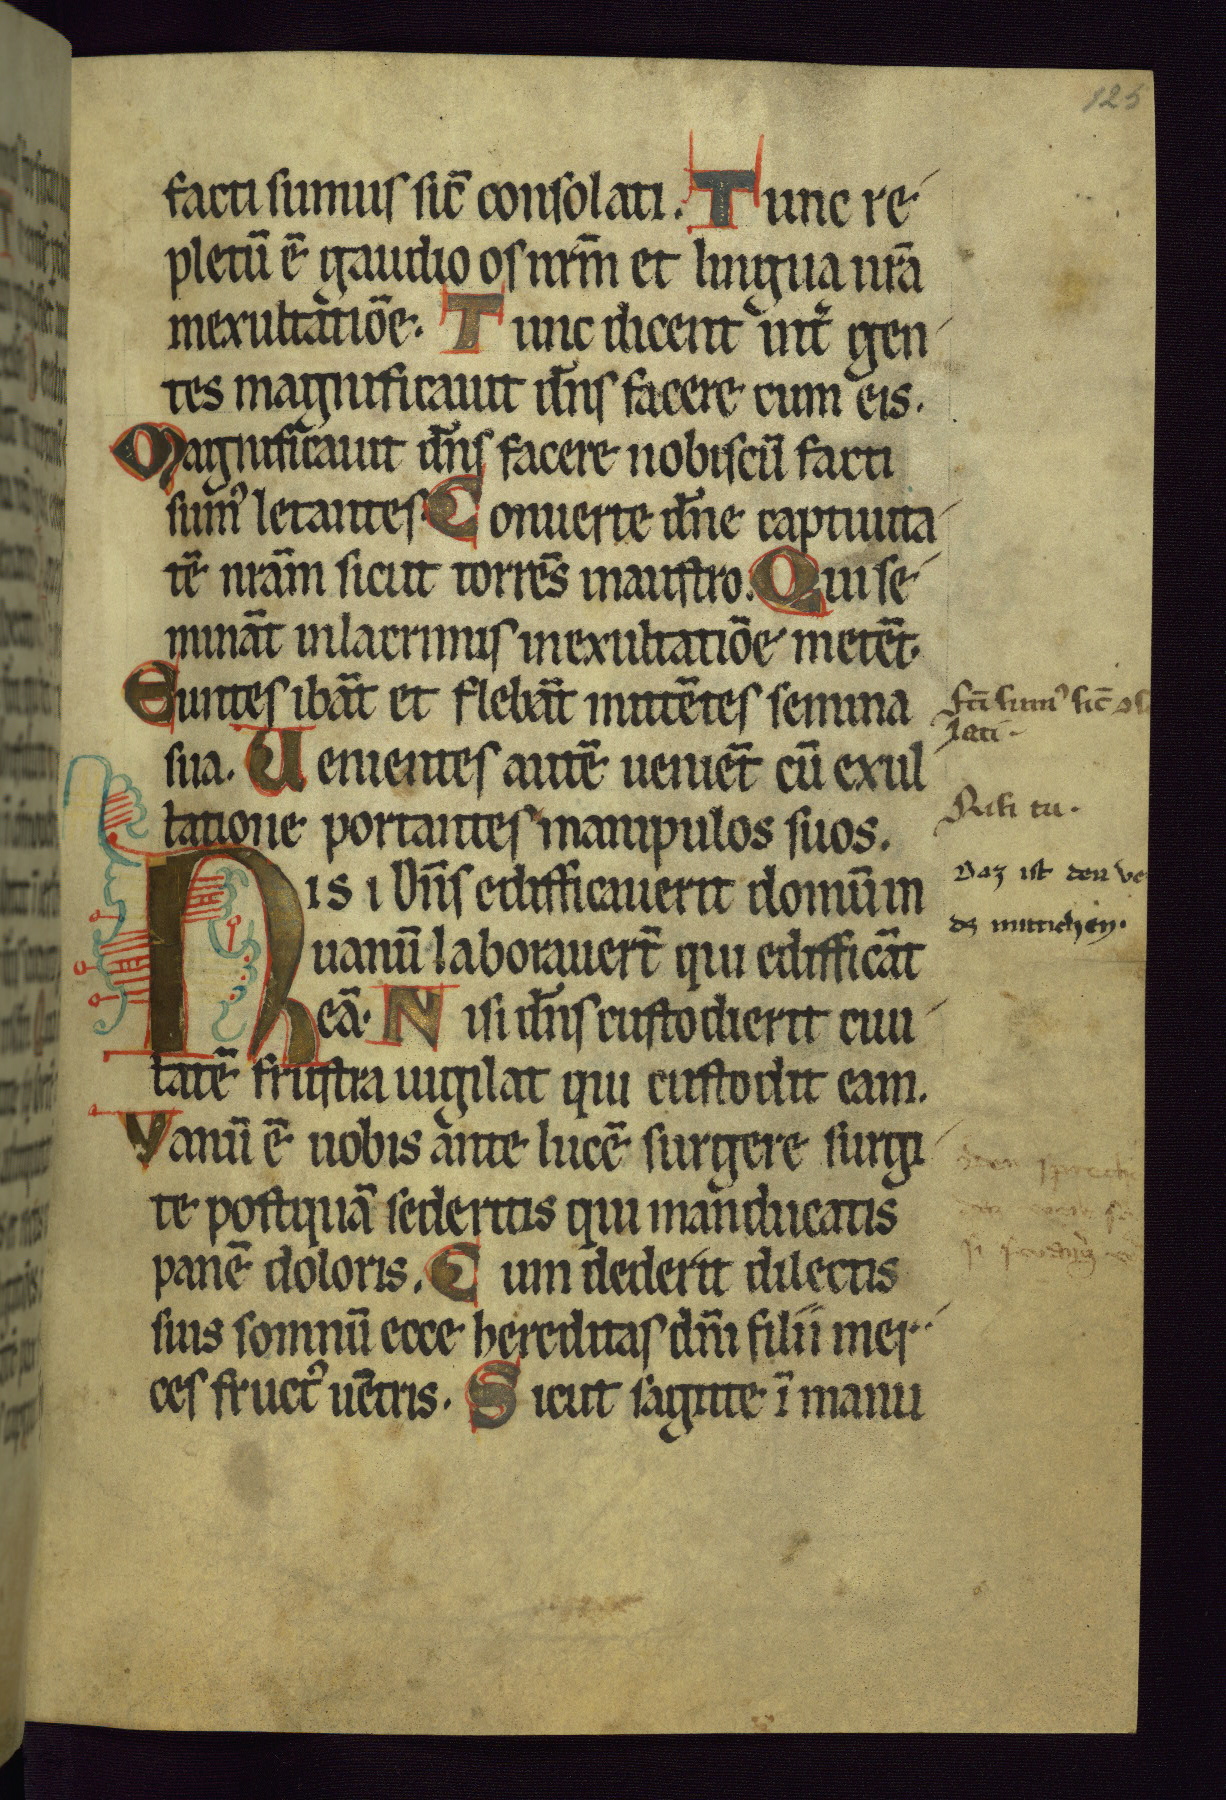 125
facti sumus sic̄ consolati. Tunc re
pletū ē gaudio os nrm̄ et lingua nrā
inexultatiōe. Tunc dicent int̄ gen
tes magnificauit dn̄s facere cum eis.
Magnificauit dn̄s facere nobiscū facti
sumꝰ letantes. Conuerte dn̄e captiuita
tē nrām sicut torrēs inaustro. Qui se
minānt inlacrimis inexultatiōe metēt.
Euntes ibāt et flebāt mittētes semina
sua. Uenientes autē ueniēt cū exul
tatione portantes manipulos suos.
Nisi Dn̄s edifficauerit domū in
uanū laborauert̄ qui edifficāt
eā. Nisi dn̄s custodierit ciui
tatē frustra uigilat qui custodit eam.
Vanū ē nobis ante lucē surgere surgi
te postquā sederitis qui manducatis
panē doloris. Cum dederit dilectis
suis somnū ecce hereditas dn̄i filii mer
ces fructꝰ uētris. Sicut sagitte ī manu
fcī sumꝰ sic̄
lati.
Nisi tu.
Daz ist den
dz mittichen.